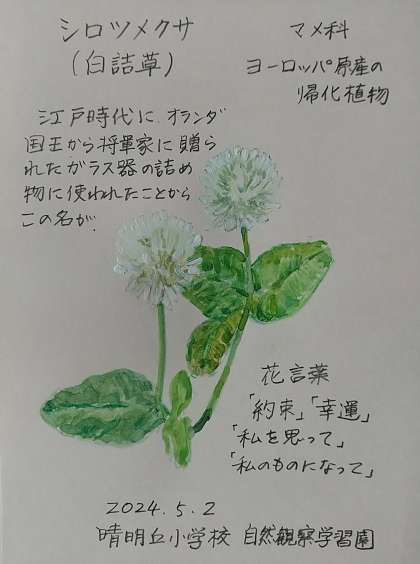 シロツメクサ
(白詰草)
マメ科
ヨーロッパ原産の
帰化植物
江戸時代に、オランダ
国王から将軍家に贈ら
れたガラス器の詰め
物に使われたことから
この名が、
花言葉
「約束」「幸運」
「私を思って」
「私のものになって」
2024.5.2
晴明丘小学校 自然観察学習園